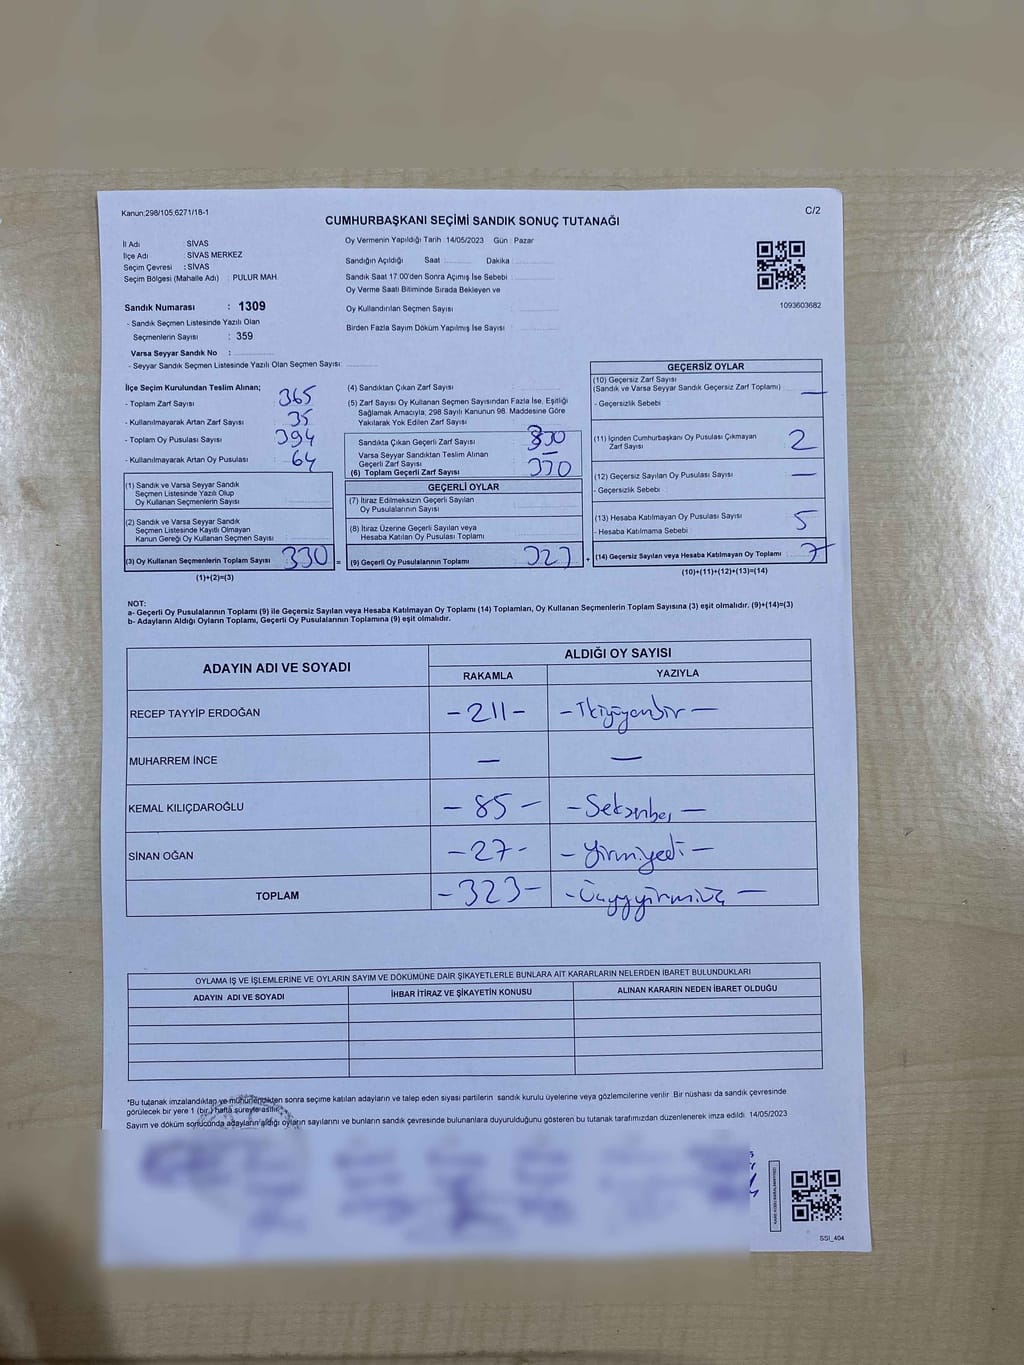 Kanun:298/105,6271/18-1
C/2
CUMHURBAŞKANI SEÇİMİ SANDIK SONUÇ TUTANAĞI
İl Adı SİVAS
İlçe Adı SİVAS MERKEZ
Seçim Çevresi : SİVAS
Seçim Bölgesi (Mahalle Adı) : PULUR MAH.
Oy Vermenin Yapıldığı Tarih 14/05/2023 Gün : Pazar
Sandığın Açıldığı Saat Dakika
Sandık Saat 17.00'den Sonra Açımış İse Sebebi
Oy Verme Saati Bitiminde Sırada Bekleyen ve
Oy Kullandırılan Seçmen Sayısı
Birden Fazla Sayım Döküm Yapılmış İse Sayısı
1093603682
Sandık Numarası : 1309
- Sandık Seçmen Listesinde Yazılı Olan
Seçmenlerin Sayısı : 359
Varsa Seyyar Sandık No :
- Seyyar Sandık Seçmen Listesinde Yazılı Olan Seçmen Sayısı
İlçe Seçim Kurulundan Teslim Alınan;
- Toplam Zarf Sayısı 365
- Kullanılmayarak Artan Zarf Sayısı 35
- Toplam Oy Pusulası Sayısı 394
- Kullanılmayarak Artan Oy Pusulası 64
(1) Sandık ve Varsa Seyyar Sandık
Seçmen Listesinde Yazılı Olup
Oy Kullanan Seçmenlerin Sayısı
(2) Sandık ve Varsa Seyyar Sandık
Seçmen Listesinde Kayıtlı Olmayan
Kanun Gereği Oy Kullanan Seçmen Sayısı
(3) Oy Kullanan Seçmenlerin Toplam Sayısı 330
(1)+(2)=(3)
(4) Sandıktan Çıkan Zarf Sayısı
(5) Zarf Sayısı Oy Kullanan Seçmen Sayısından Fazla İse, Eşitliği
Sağlamak Amacıyla, 298 Sayılı Kanunun 98. Maddesine Göre
Yakılarak Yok Edilen Zarf Sayısı
Sandıkta Çıkan Geçerli Zarf Sayısı 330
Varsa Seyyar Sandıktan Teslim Alınan
Geçerli Zarf Sayısı —
(6) Toplam Geçerli Zarf Sayısı 330
GEÇERLİ OYLAR
(7) İtiraz Edilmeksizin Geçerli Sayılan
Oy Pusulalarının Sayısı
(8) İtiraz Üzerine Geçerli Sayılan veya
Hesaba Katılan Oy Pusulası Toplamı
= (9) Geçerli Oy Pusulalarının Toplamı 323
GEÇERSİZ OYLAR
(10) Geçersiz Zarf Sayısı
(Sandık ve Varsa Seyyar Sandık Geçersiz Zarf Toplamı) —
- Geçersizlik Sebebi
(11) İçinden Cumhurbaşkanı Oy Pusulası Çıkmayan
Zarf Sayısı 2
(12) Geçersiz Sayılan Oy Pusulası Sayısı —
- Geçersizlik Sebebi
(13) Hesaba Katılmayan Oy Pusulası Sayısı 5
- Hesaba Katılmama Sebebi
+ (14) Geçersiz Sayılan veya Hesaba Katılmayan Oy Toplamı 7
(10)+(11)+(12)+(13)=(14)
NOT:
a- Geçerli Oy Pusulalarının Toplamı (9) ile Geçersiz Sayılan veya Hesaba Katılmayan Oy Toplamı (14) Toplamları, Oy Kullanan Seçmenlerin Toplam Sayısına (3) eşit olmalıdır. (9)+(14)=(3)
b- Adayların Aldığı Oyların Toplamı, Geçerli Oy Pusulalarının Toplamına (9) eşit olmalıdır.
ADAYIN ADI VE SOYADI
ALDIĞI OY SAYISI
RAKAMLA YAZIYLA
RECEP TAYYİP ERDOĞAN -211- - İkiyüzonbir -
MUHARREM İNCE — —
KEMAL KILIÇDAROĞLU -85- - Seksenbeş -
SİNAN OĞAN -27- - yirmiyedi -
TOPLAM -323- - Üçyüzyirmiüç -
OYLAMA İŞ VE İŞLEMLERİNE VE OYLARIN SAYIM VE DÖKÜMÜNE DAİR ŞİKAYETLERLE BUNLARA AİT KARARLARIN NELERDEN İBARET BULUNDUKLARI
ADAYIN ADI VE SOYADI İHBAR İTİRAZ VE ŞİKAYETİN KONUSU ALINAN KARARIN NEDEN İBARET OLDUĞU
*Bu tutanak imzalandıktan ve mühürlendikten sonra seçime katılan adayların ve talep eden siyasi partilerin sandık kurulu üyelerine veya gözlemcilerine verilir. Bir nüshası da sandık çevresinde
görülecek bir yere 1 (bir) hafta süreyle asılır.
Sayım ve döküm sonucunda adayların aldığı oyların sayılarını ve bunların sandık çevresinde bulunanlara duyurulduğunu gösteren bu tutanak tarafımızdan düzenlenerek imza edildi. 14/05/2023
SSI_404